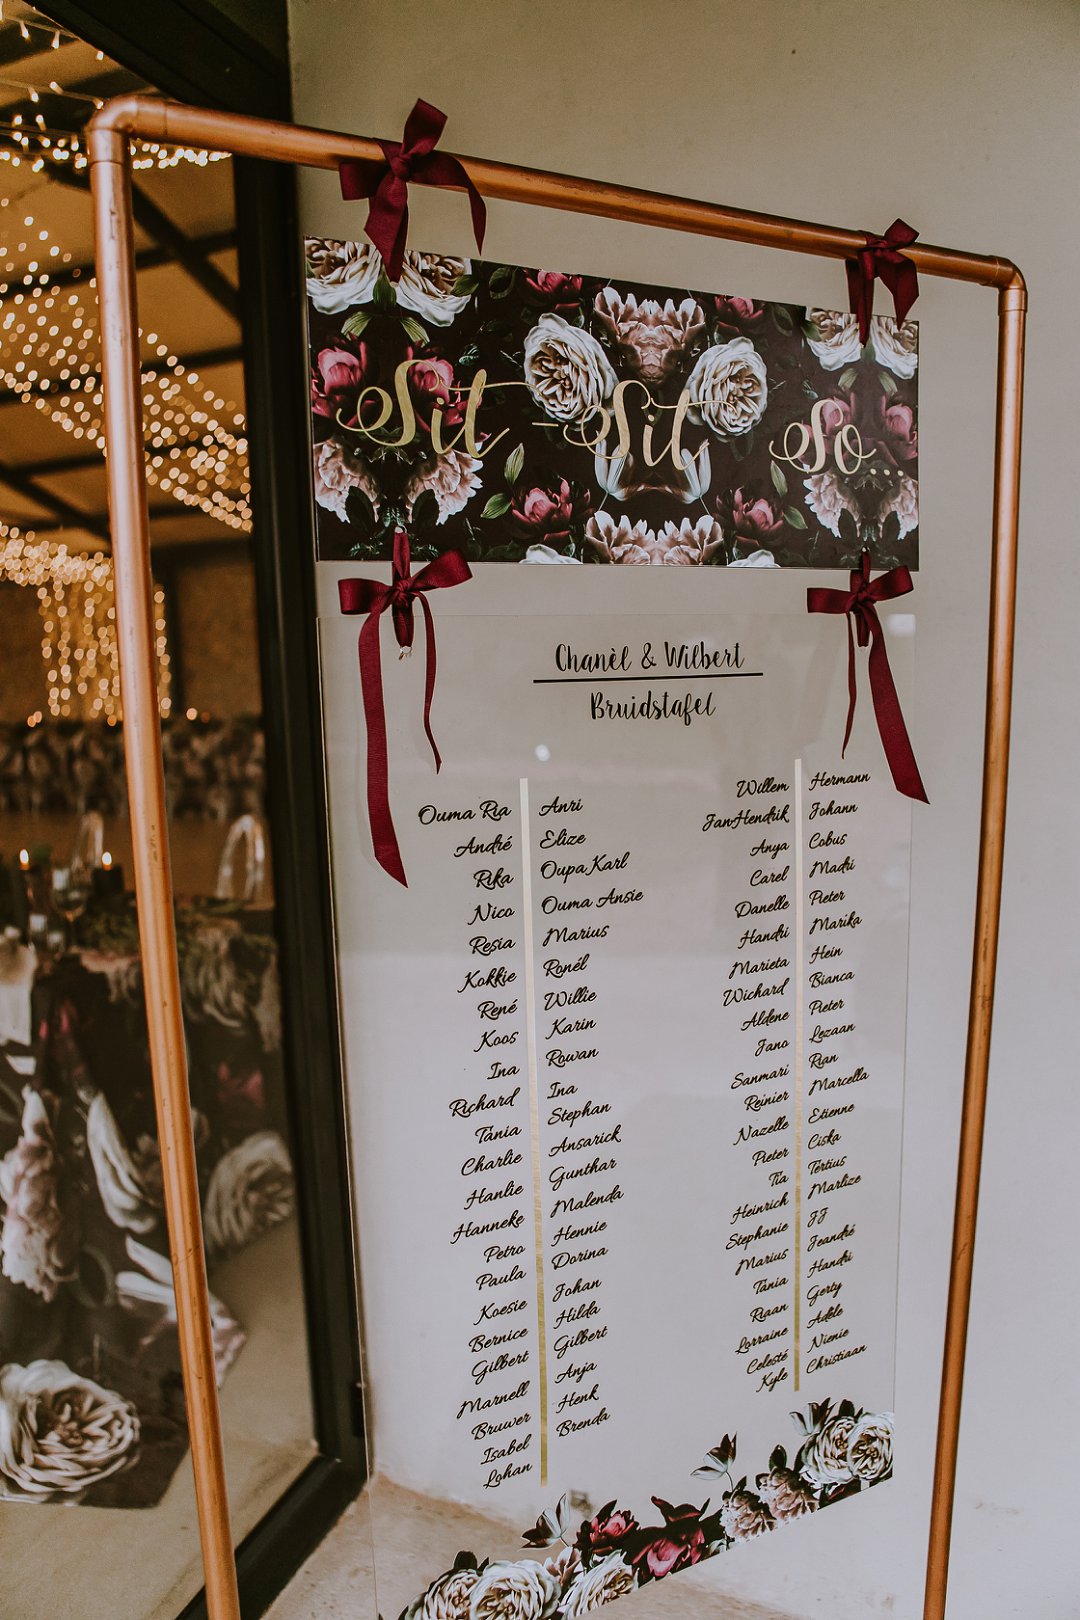 Sit-Sit So...
Chanèl & Wilbert
Bruidstafel
Ouma Ria
André
Rika
Nico
Resia
Kokkie
René
Koos
Ina
Richard
Tánia
Charlie
Hanlie
Hanneke
Petro
Paula
Koesie
Bernice
Gilbert
Marnell
Bruwer
Isabel
Lohan
Anri
Elize
Oupa Karl
Ouma Ansie
Marius
Ronél
Willie
Karin
Rowan
Ina
Stephan
Ansarick
Gunthar
Malenda
Hennie
Dorina
Johan
Hilda
Gilbert
Anja
Henk
Brenda
Willem
Jan-Hendrik
Anya
Carel
Danelle
Handri
Marieta
Wichard
Aldene
Jano
Sanmari
Reinier
Nazelle
Pieter
Tia
Heinrich
Stephanie
Marius
Tánia
Riaan
Lorraine
Celesté
Kyle
Hermann
Johann
Cobus
Madri
Pieter
Marika
Hein
Bianca
Pieter
Lezaan
Rian
Marcella
Etienne
Ciska
Tertius
Marlize
JJ
Jeandré
Handri
Gerty
Adéle
Nienie
Christiaan